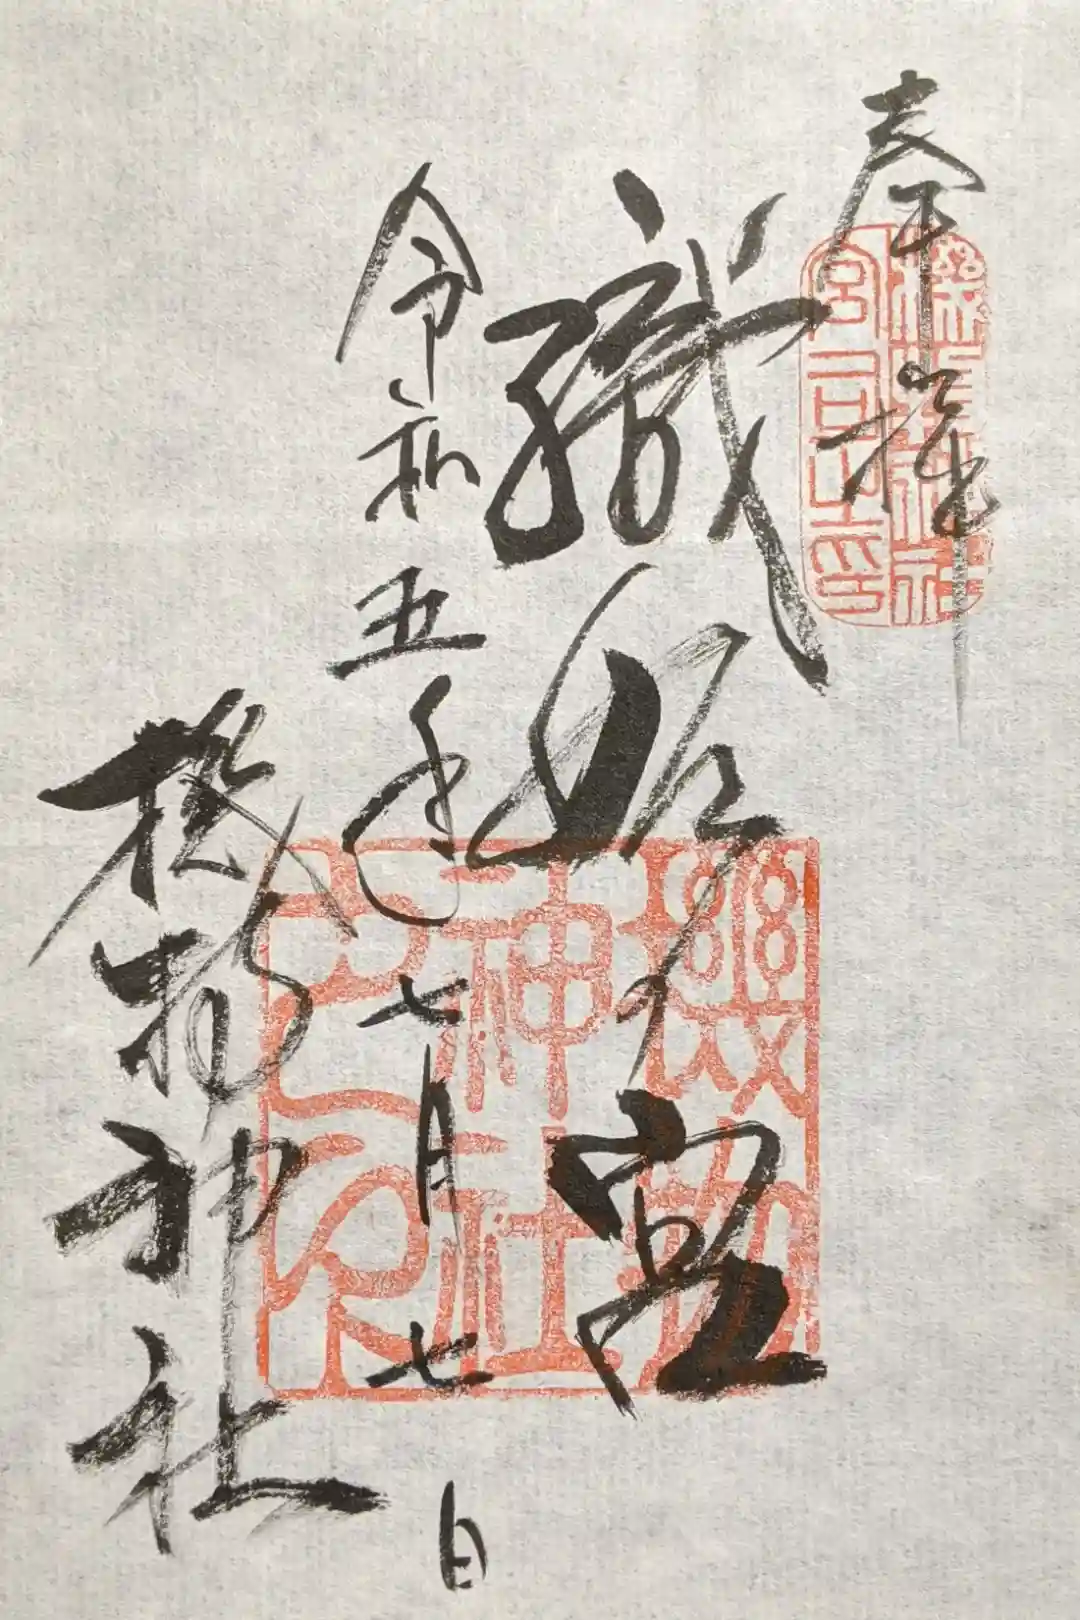 奉拝
機物神社
宮司之印
織姫 宮
令和五年七月七日
機物神社
機物
神社
之印